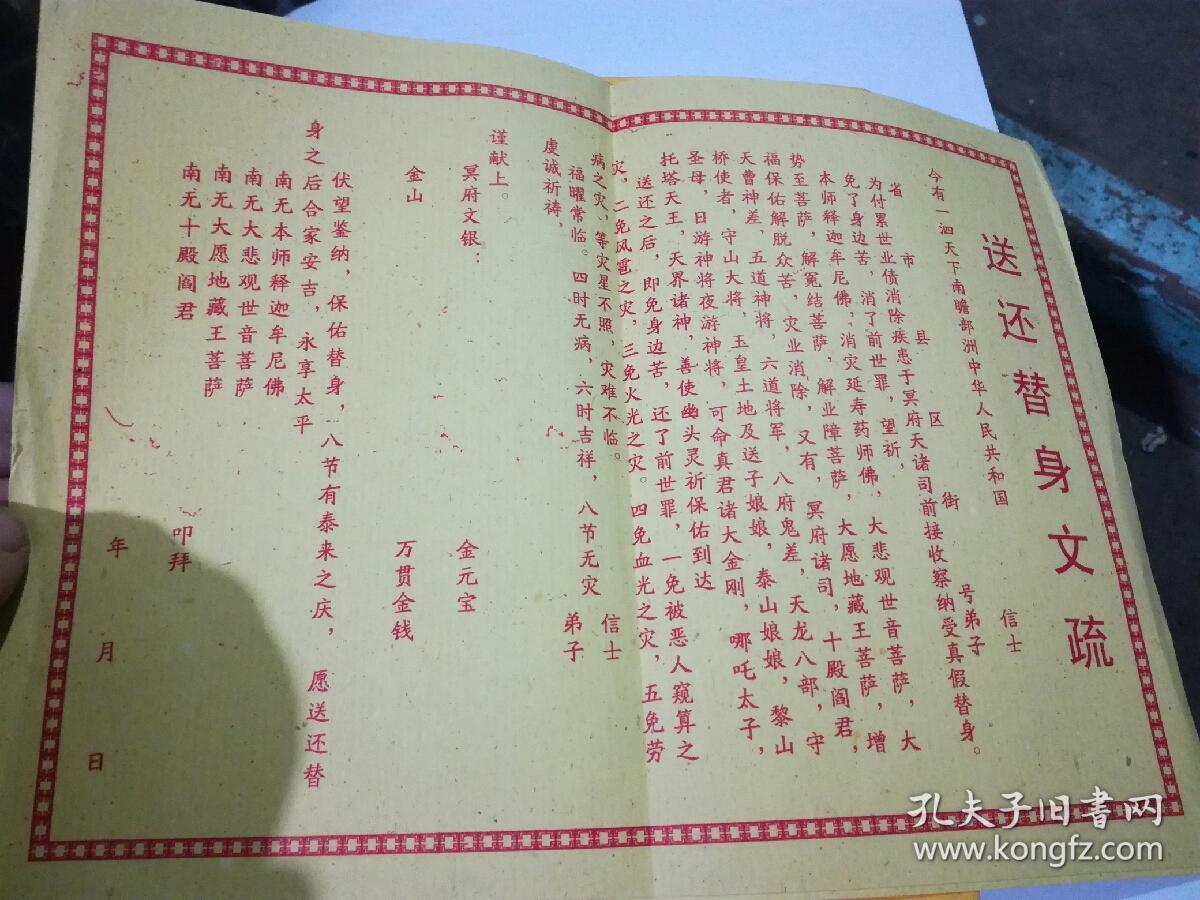 送还替身文疏
今有一泗天下南瞻部洲中华人民共和国 信士
省 市 县 区 街 号弟子
为付累世业债消除疾患于冥府天诸司前接收察纳受真假替身。
免了身边苦，消了前世罪，望祈，
本师释迦牟尼佛，消灾延寿药师佛，大悲观世音菩萨，大
势至菩萨，解冤结菩萨，解业障菩萨，大愿地藏王菩萨，增
福保佑解脱众苦，灾业消除，又有，冥府诸司，十殿阎君，
天曹神差，五道神将，六道将军，八府鬼差，天龙八部，守
桥使者，守山大将，玉皇土地及送子娘娘，泰山娘娘，黎山
圣母，日游神将夜游神将，可命真君诸大金刚，哪吒太子，
托塔天王，天界诸神，善使幽头灵祈保佑到达
送还之后，即免身边苦，还了前世罪，一免被恶人窥算之
灾，二免风雹之灾，三免火光之灾。四免血光之灾，五免劳
病之灾，等灾星不照，灾难不临。
福曜常临。四时无病，六时吉祥，八节无灾 信士
虔诚祈祷， 弟子
谨献上。
冥府文银： 金元宝
金山 万贯金钱
伏望鉴纳，保佑替身，八节有泰来之庆，愿送还替
身之后合家安吉，永享太平
南无本师释迦牟尼佛
南无大悲观世音菩萨
南无大愿地藏王菩萨
南无十殿阎君 叩拜
年 月 日
孔夫子旧书网
www.kongfz.com